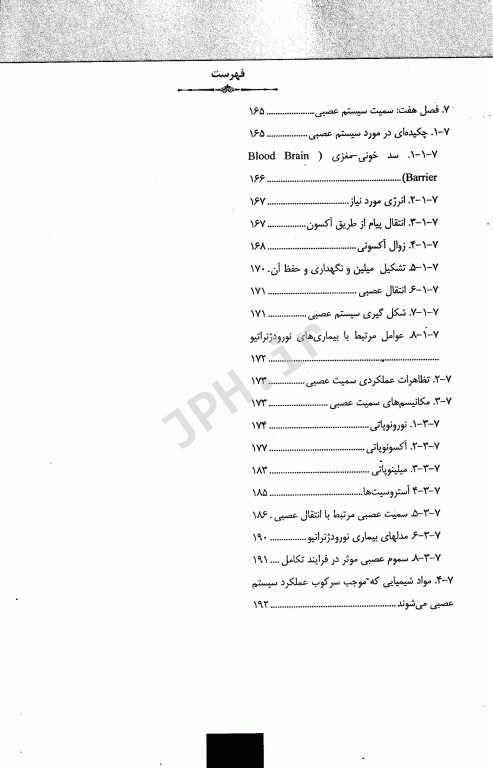 فهرست
۷. فصل هفت: سمیت سیستم عصبی ...................... ۱۶۵
۷-۱. چکیده‌ای در مورد سیستم عصبی .................. ۱۶۵
۷-۱-۱. سد خونی-مغزی ( Blood Brain
Barrier) .................................................. ۱۶۶
۷-۱-۲. انرژی مورد نیاز ................................ ۱۶۷
۷-۱-۳. انتقال پیام از طریق آکسون ................ ۱۶۷
۷-۱-۴. زوال آکسونی .................................. ۱۶۸
۷-۱-۵. تشکیل میلین و نگهداری و حفظ آن . ۱۷۰
۷-۱-۶. انتقال عصبی .................................. ۱۷۱
۷-۱-۷. شکل گیری سیستم عصبی ................ ۱۷۱
۷-۱-۸. عوامل مرتبط با بیماری‌های نورودژنراتیو
.................................................................. ۱۷۲
۷-۲. تظاهرات عملکردی سمیت عصبی .............. ۱۷۳
۷-۳. مکانیسم‌های سمیت عصبی ...................... ۱۷۳
۷-۳-۱. نورونوپاتی ...................................... ۱۷۴
۷-۳-۲. آکسونوپاتی .................................... ۱۷۷
۷-۳-۳. میلینوپاتی ...................................... ۱۸۳
۷-۳-۴ آستروسیت‌ها .................................... ۱۸۵
۷-۳-۵. سمیت عصبی مرتبط با انتقال عصبی . ۱۸۶
۷-۳-۶. مدلهای بیماری نورودژنراتیو .............. ۱۹۰
۷-۳-۸. سموم عصبی موثر در فرایند تکامل .... ۱۹۱
۷-۴. مواد شیمیایی که موجب سرکوب عملکرد سیستم
عصبی می‌شوند ................................................ ۱۹۲
JPH.ir